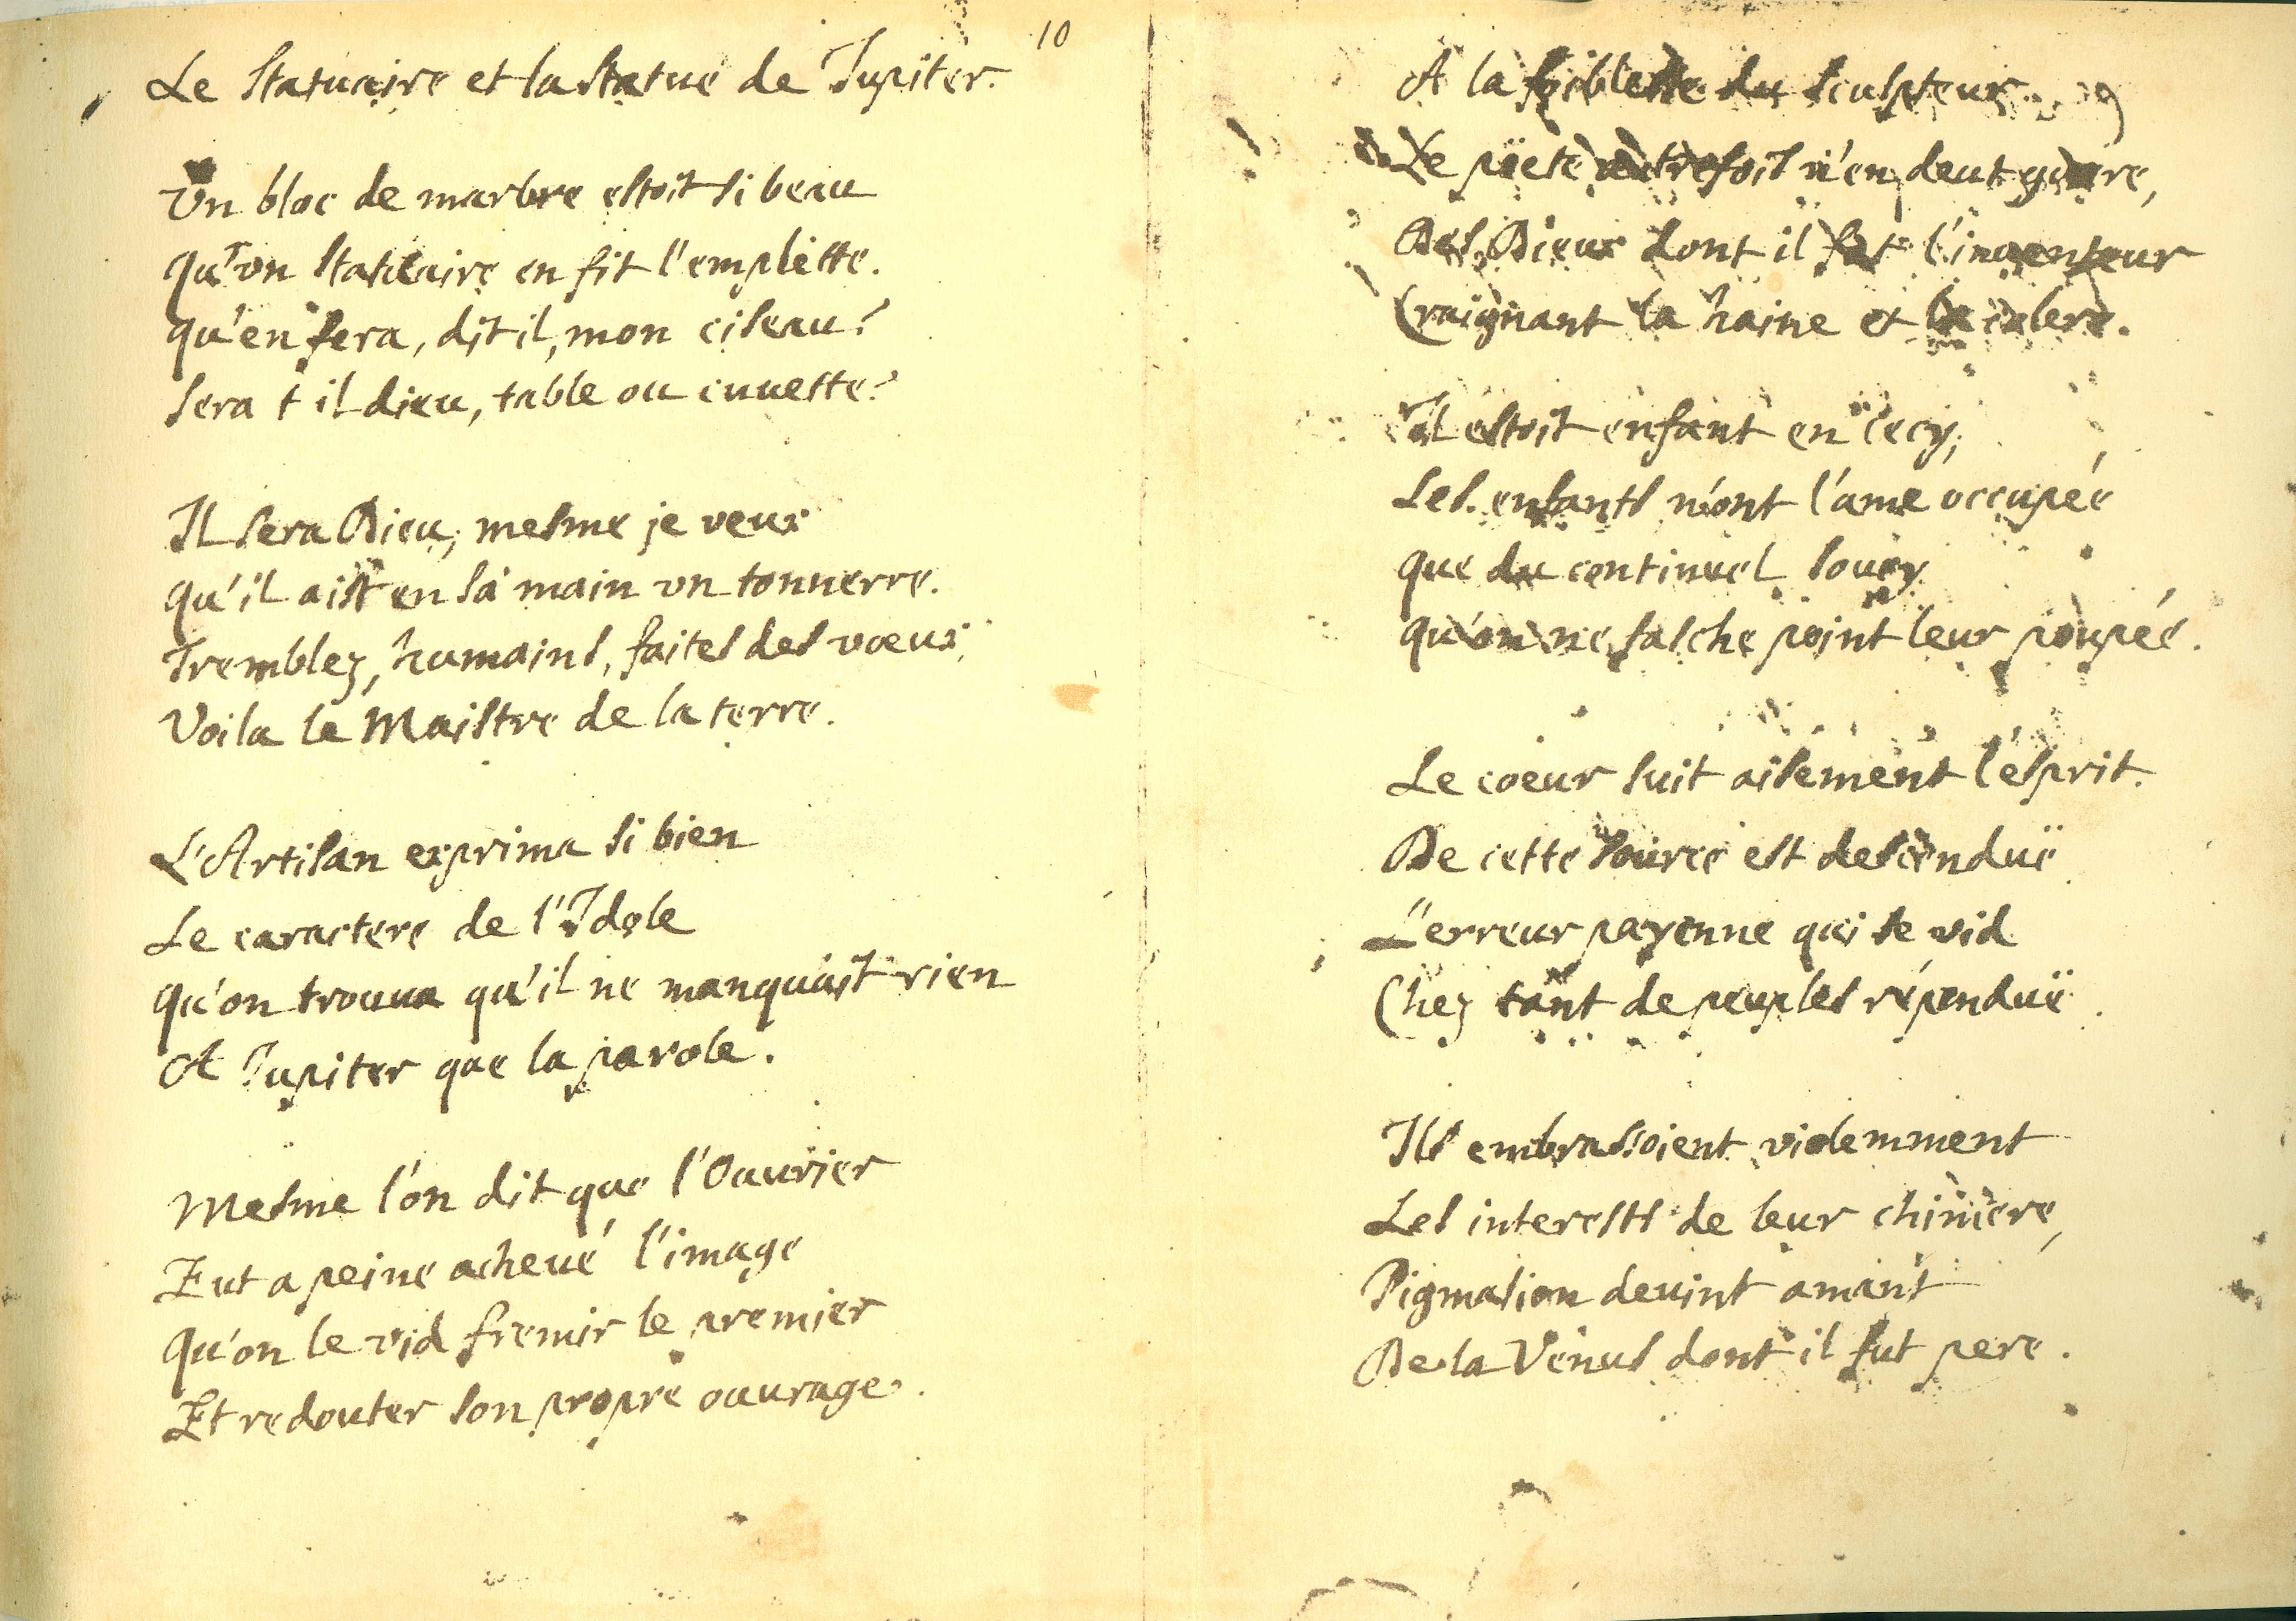 10
Le Statuaire et la Statue de Jupiter.
Vn bloc de marbre estoit si beau
Qu'vn Statuaire en fit l'emplette.
Qu'en fera, dit il, mon ciseau?
Sera t il dieu, table ou cuuette?
Il sera Dieu, mesme je veux
Qu'il aist en sa main vn tonnerre.
Tremblez, humains, faites des vœux,
Voila le Maistre de la terre.
L'Artisan exprima si bien
Le caractere de l'Idole
Qu'on trouua qu'il ne manquast rien
A Jupiter que la parole.
Mesme l'on dit que l'Ouurier
Eut a peine acheué l'image
Qu'on le vid fremir le premier
Et redouter son propre ouurage.
A la foiblesse du Sculpteur
Le pöete autrefois n'en deut guere,
Des Dieux dont il fut l'inuenteur
Craignant la haine et la colere.
Il estoit enfant en cecy,
Les enfants n'ont l'ame occupée
Que du continuel soucy
Qu'on ne fasche point leur poupée.
Le cœur suit aisement l'esprit.
De cette source est descenduë
L'erreur payenne qui se vid
Chez tant de peuples répenduë.
Ils embrassoient violemment
Les interests de leur chimere,
Pigmalion deuint amant
De la Venus dont il fut pere.